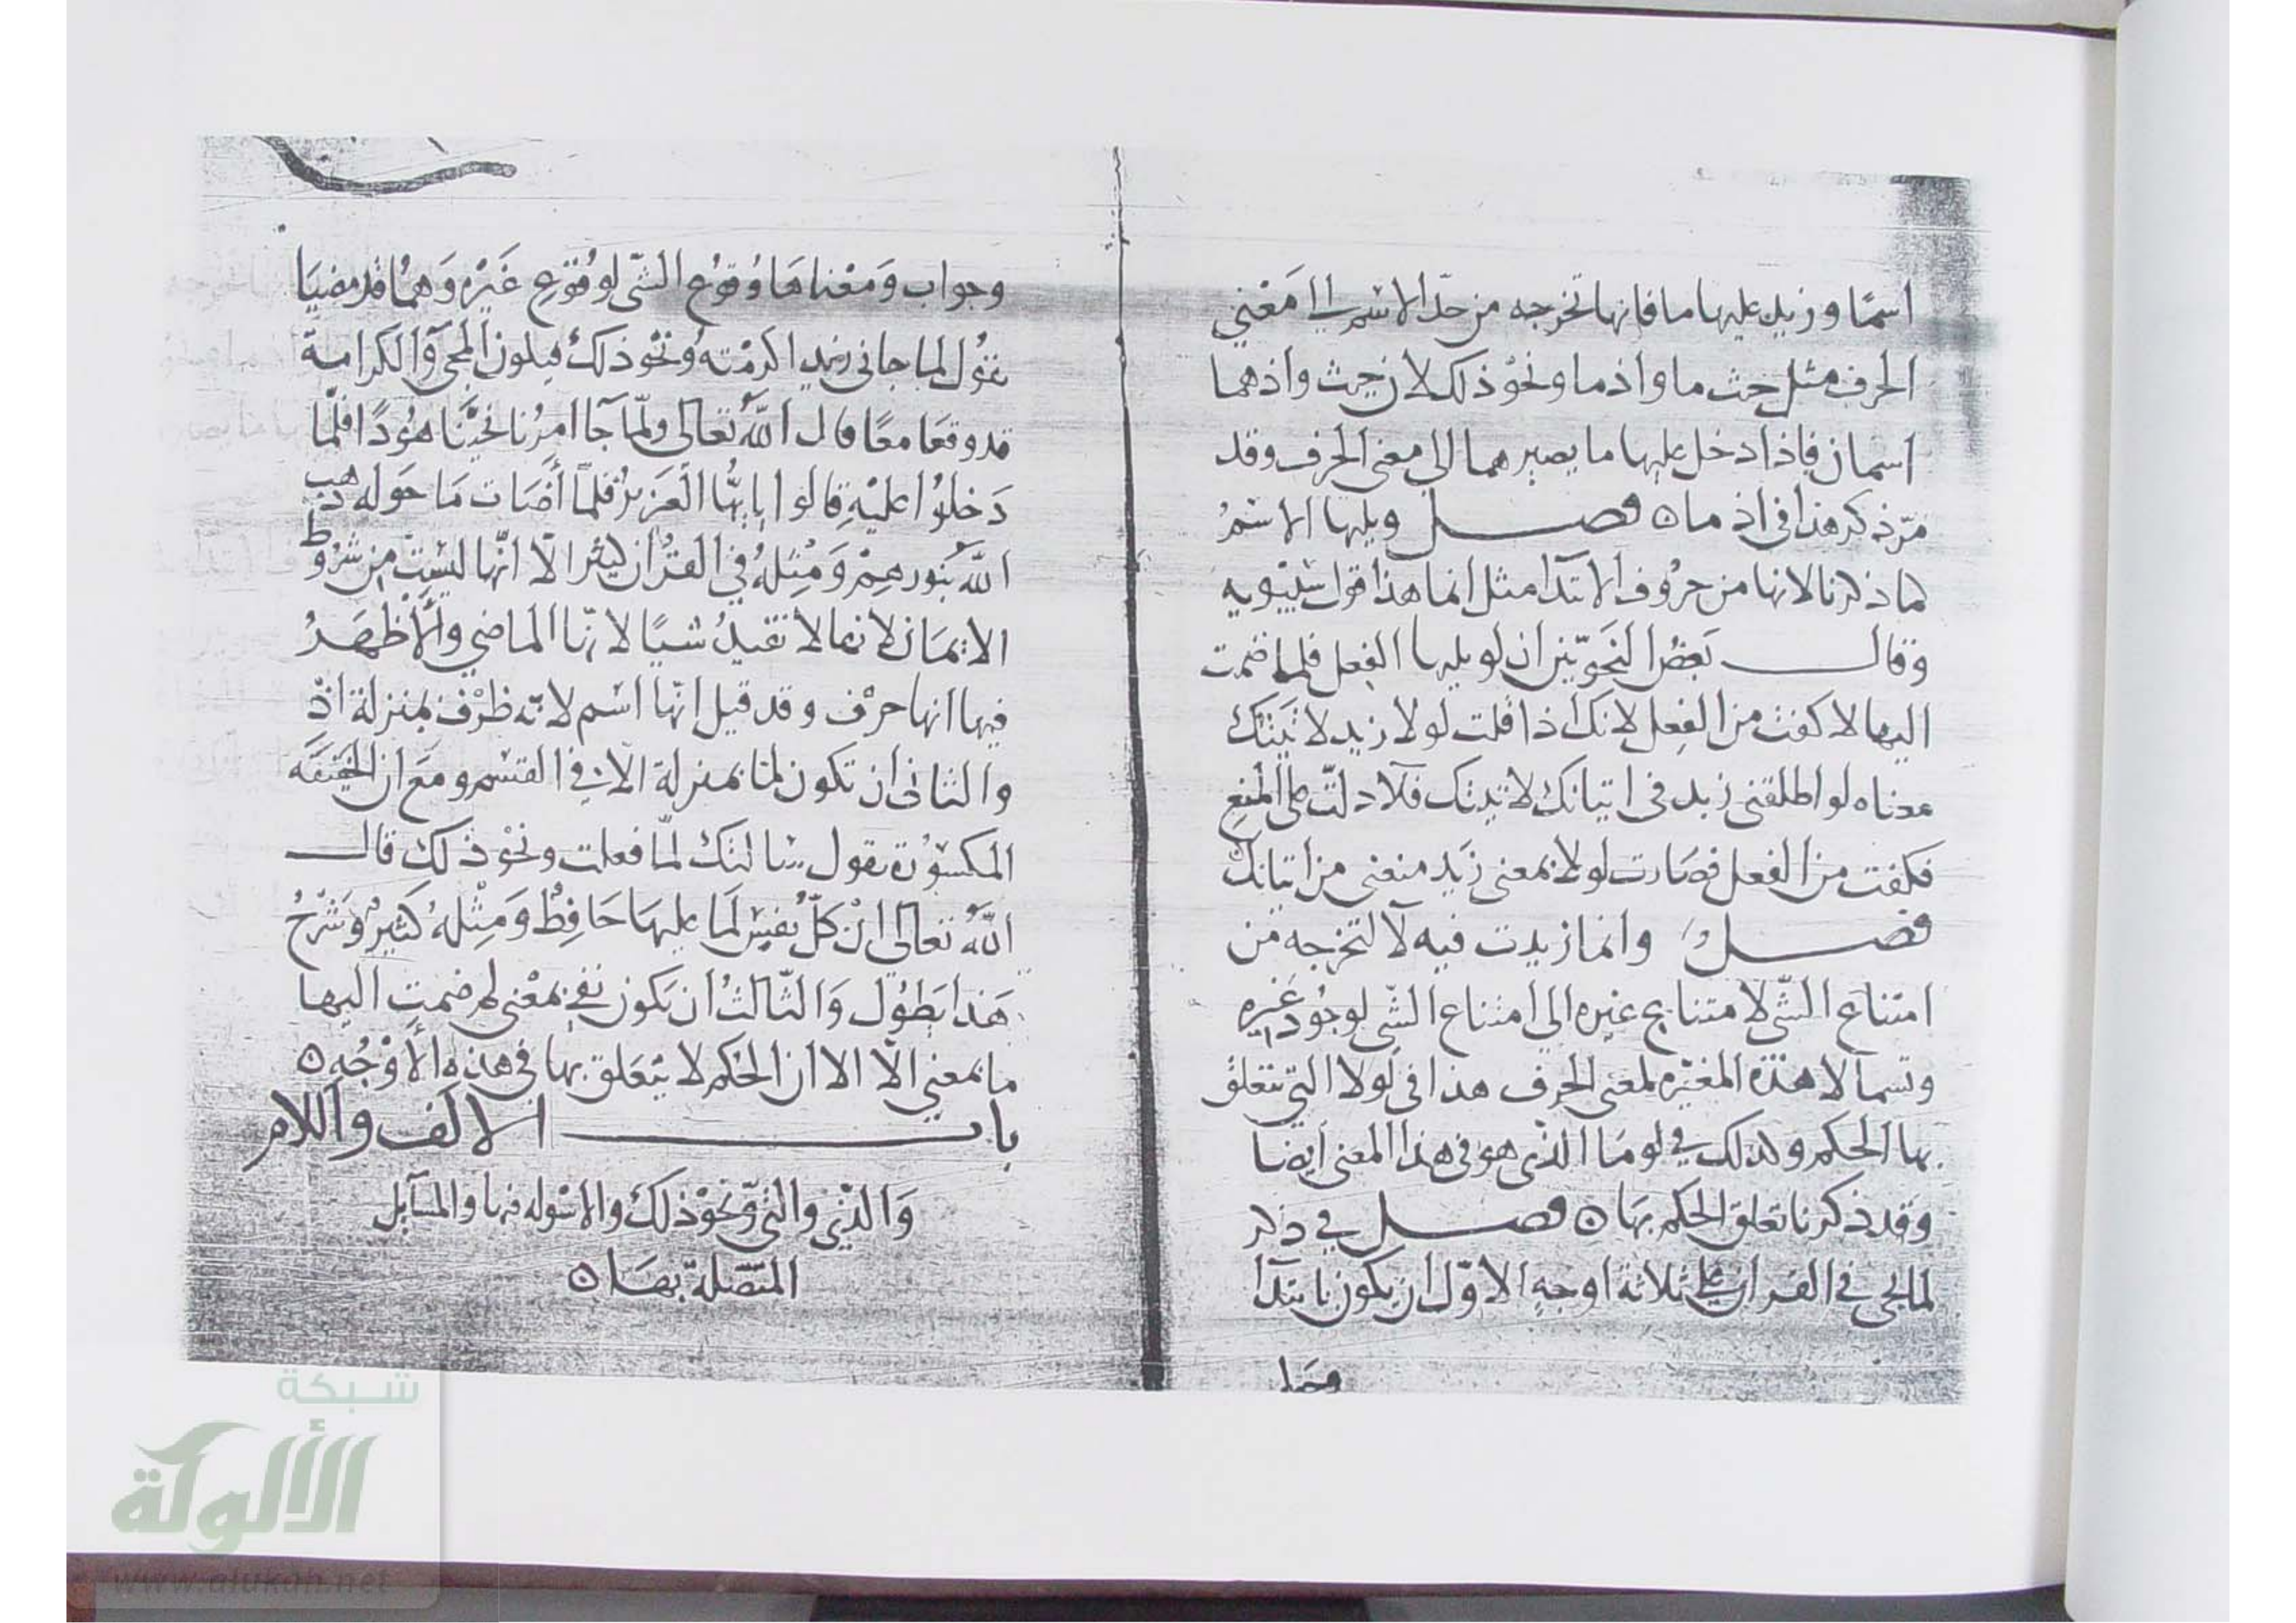 اسمًا وزيد عليها ما فانها تخرجه من حدّ الاسم الى معنى
الحرف مثل حيث ما واذما ونحو ذلك لان حيث واذ هما
اسمان فاذا دخل عليها ما يصير هما الى معنى الحرف وقد
مرّ ذكر هذا في اذ ما ه فصل ويليها الاسمُ
كما ذكرنا لانها من حرُوف الابتدا مثل انما هذا قول سيبويه
وقال بَعضُ النَحوّيين ان لو يليها الفِعل فلما ضمت
اليها لا كفت من الفِعل لانك اذا قلت لولا زيد لاتَيتك
معناه لو اطلقنى زيد في اتيانك لاتيتك فلا دلتّ على المنِع
فكفت من الفعل فصَارت لولا بمعنى زَيد منعنى من اتيانك
فصل وانما زيدت فيه لا لتخرجه من
امتناع الشّى لامتناع غيره الى امتناع الشّى لوجُود غَيره
وتسما لا هذه المغيّره لمعنى الحرف هذا في لولا التي تتعلق
بها الحكم وكذلك في لومَا الذى هو في هذا المعنى ايضا
وقد ذكرنا تعلق الحكم بهَا ه فصل في ذكر
لما يجى في القران على ثلاثة اوجهٍ الاوّل ان يكون بابتدآ
وجوابـ
وجواب وَمَعْناهَا وُقوُع الشّى لوقُوُع غَيْره وَهمُا قد مضيَا
تقُول لما جانى زيد اكرمْته وُنحْو ذلك فيكون المجى والكرامة
قد وقعَا معًا قال اللهُ تعَالى ولمّا جآ امرُنا نجَّيْنَا هُودًا فلمّا
دَخلوُا عليْهِ قالوا يايهُّا العَزيزُ فلمّا أضَات مَا حَوله ذهب
اللّه بنورهِمْ وَمثِلهُ في القرُان كثيرا الّا انّها ليسَتْ من شرُوط
الايمَان لانها لا تفيدُ شيًا لانّها الماضي والأظهَرُ
فيها انها حرْف وقد قيل انّها اسْم لانّه ظرْف بمنزلة اذْ
والثانى ان تكون لمّا بمنزلة الّا في القسَم ومعَ ان الخفيَفَه
المكسوُرة تقول سالتك لمّا فعلت ونحْو ذلك قال
اللّهُ تعالى انْ كلّ نفسٍ لَما عليهَا حَافِظٌ وَمِثْلهُ كثيرٌ وَشرْحُ
هَذا يَطوُل وَالثّالثُ ان تكون نفى بمعْنى لم ضمت اليها
ما بمعنى الّا الا ان الحُكم لا يتعَلق بها في هذه الأوْجُهِ ه
باب الالف واللام
وَالذّي والتي ونحوْ ذلك والاسْوله فيها والمسآيل
المتّصلة بهَا ه
شبكة
الألوكة
www.alukah.net